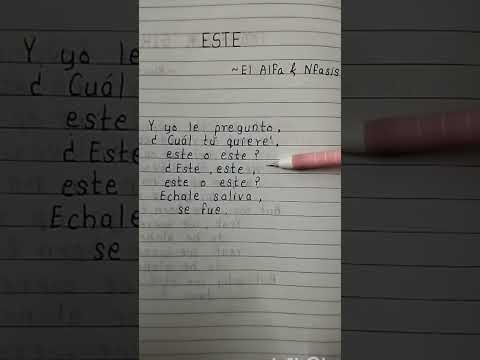 ESTE
~El Alfa & Nfasis
Y yo le pregunto,
¿Cuál tu quiere',
este o este?
¿Este, este,
este o este?
Echale saliva,
se fue.